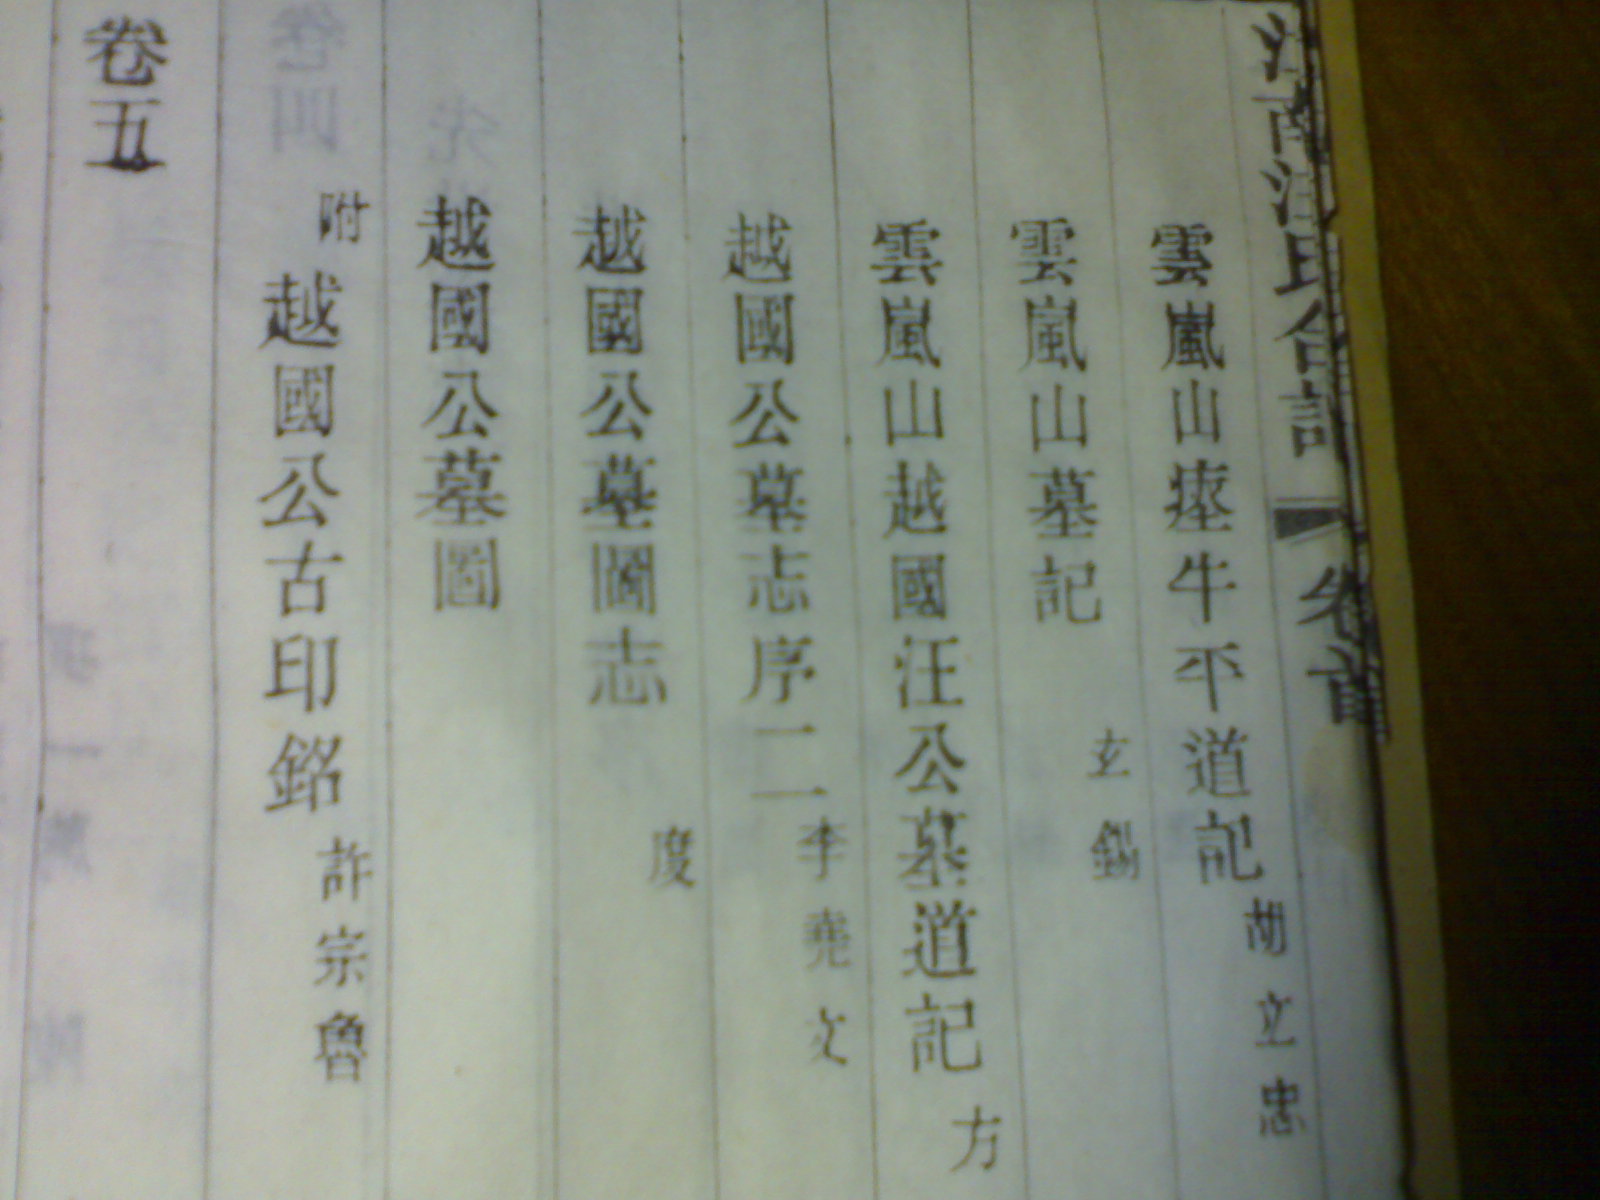 雲嵐山瘞牛平道記 胡立忠
雲嵐山墓記 玄錫
雲嵐山越國汪公墓道記 方
越國公墓志序二 李堯文
越國公墓圖志 度
越國公墓圖
附 越國公古印銘 許宗魯
卷五